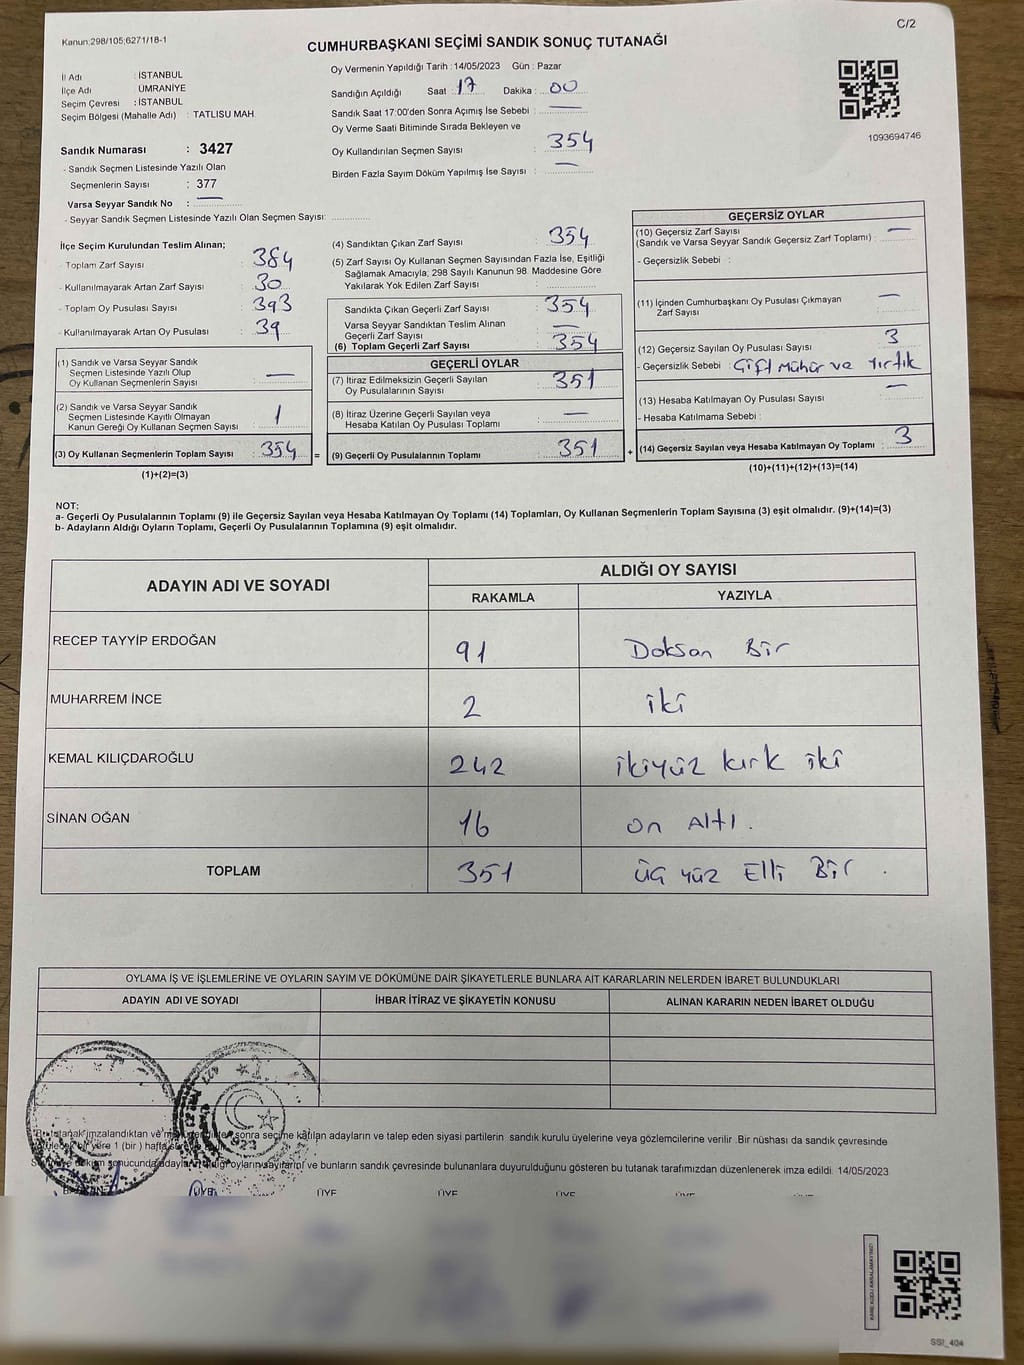 C/2
Kanun:298/105;6271/18-1
CUMHURBAŞKANI SEÇİMİ SANDIK SONUÇ TUTANAĞI
İl Adı : İSTANBUL
İlçe Adı ÜMRANİYE
Seçim Çevresi : İSTANBUL
Seçim Bölgesi (Mahalle Adı) : TATLISU MAH.
Oy Vermenin Yapıldığı Tarih : 14/05/2023 Gün : Pazar
Sandığın Açıldığı Saat : 17 Dakika : 00
Sandık Saat 17:00'den Sonra Açımış İse Sebebi : —
Oy Verme Saati Bitiminde Sırada Bekleyen ve
Oy Kullandırılan Seçmen Sayısı : 354
Birden Fazla Sayım Döküm Yapılmış İse Sayısı : —
1093694746
Sandık Numarası : 3427
- Sandık Seçmen Listesinde Yazılı Olan
Seçmenlerin Sayısı : 377
Varsa Seyyar Sandık No : —
- Seyyar Sandık Seçmen Listesinde Yazılı Olan Seçmen Sayısı:
İlçe Seçim Kurulundan Teslim Alınan;
- Toplam Zarf Sayısı : 384
- Kullanılmayarak Artan Zarf Sayısı : 30
- Toplam Oy Pusulası Sayısı : 393
- Kullanılmayarak Artan Oy Pusulası : 39
(1) Sandık ve Varsa Seyyar Sandık
Seçmen Listesinde Yazılı Olup
Oy Kullanan Seçmenlerin Sayısı : —
(2) Sandık ve Varsa Seyyar Sandık
Seçmen Listesinde Kayıtlı Olmayan
Kanun Gereği Oy Kullanan Seçmen Sayısı : 1
(3) Oy Kullanan Seçmenlerin Toplam Sayısı : 354 =
(1)+(2)=(3)
(4) Sandıktan Çıkan Zarf Sayısı : 354
(5) Zarf Sayısı Oy Kullanan Seçmen Sayısından Fazla İse, Eşitliği
Sağlamak Amacıyla; 298 Sayılı Kanunun 98. Maddesine Göre
Yakılarak Yok Edilen Zarf Sayısı :
Sandıkta Çıkan Geçerli Zarf Sayısı : 354
Varsa Seyyar Sandıktan Teslim Alınan
Geçerli Zarf Sayısı : —
(6) Toplam Geçerli Zarf Sayısı : 354
GEÇERLİ OYLAR
(7) İtiraz Edilmeksizin Geçerli Sayılan
Oy Pusulasının Sayısı : 351
(8) İtiraz Üzerine Geçerli Sayılan veya
Hesaba Katılan Oy Pusulası Toplamı : —
(9) Geçerli Oy Pusulalarının Toplamı : 351 +
GEÇERSİZ OYLAR
(10) Geçersiz Zarf Sayısı
(Sandık ve Varsa Seyyar Sandık Geçersiz Zarf Toplamı) : —
- Geçersizlik Sebebi :
(11) İçinden Cumhurbaşkanı Oy Pusulası Çıkmayan
Zarf Sayısı : —
(12) Geçersiz Sayılan Oy Pusulası Sayısı : 3
- Geçersizlik Sebebi : Çift Mühür ve Yırtık
(13) Hesaba Katılmayan Oy Pusulası Sayısı : —
- Hesaba Katılmama Sebebi :
(14) Geçersiz Sayılan veya Hesaba Katılmayan Oy Toplamı : 3
(10)+(11)+(12)+(13)=(14)
NOT:
a- Geçerli Oy Pusulalarının Toplamı (9) ile Geçersiz Sayılan veya Hesaba Katılmayan Oy Toplamı (14) Toplamları, Oy Kullanan Seçmenlerin Toplam Sayısına (3) eşit olmalıdır. (9)+(14)=(3)
b- Adayların Aldığı Oyların Toplamı, Geçerli Oy Pusulalarının Toplamına (9) eşit olmalıdır.
ADAYIN ADI VE SOYADI
ALDIĞI OY SAYISI
RAKAMLA YAZIYLA
RECEP TAYYİP ERDOĞAN 91 Doksan Bir
MUHARREM İNCE 2 iki
KEMAL KILIÇDAROĞLU 242 ikiyüz kırk iki
SİNAN OĞAN 16 on Altı.
TOPLAM 351 üç yüz Elli Bir .
OYLAMA İŞ VE İŞLEMLERİNE VE OYLARIN SAYIM VE DÖKÜMÜNE DAİR ŞİKAYETLERLE BUNLARA AİT KARARLARIN NELERDEN İBARET BULUNDUKLARI
ADAYIN ADI VE SOYADI İHBAR İTİRAZ VE ŞİKAYETİN KONUSU ALINAN KARARIN NEDEN İBARET OLDUĞU
tutanak imzalandıktan ve sonra seçime katılan adayların ve talep eden siyasi partilerin sandık kurulu üyelerine veya gözlemcilerine verilir .Bir nüshası da sandık çevresinde
yere 1 (bir ) hafta
sonucunda adayların aldığı oyların sayılarını ve bunların sandık çevresinde bulunanlara duyurulduğunu gösteren bu tutanak tarafımızdan düzenlenerek imza edildi. 14/05/2023
ÜYE ÜYE ÜYE ÜYE
KARE KODU KARALAMAYINIZ!
SSI_404